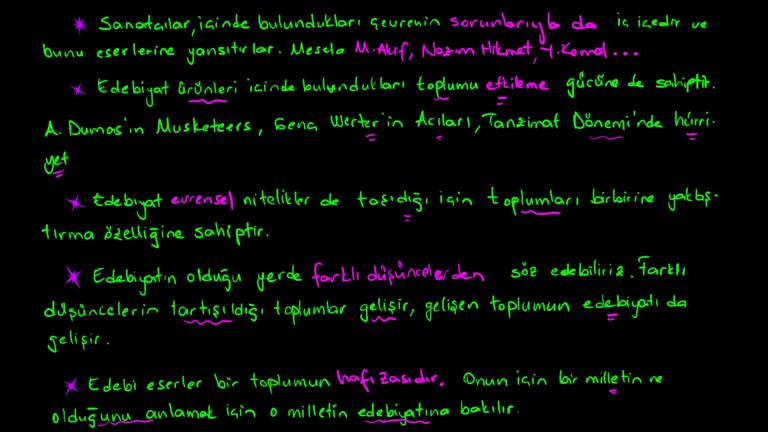 * Sanatçılar, içinde bulundukları çevrenin sorunlarıyla da iç içedir ve
bunu eserlerine yansıtırlar. Mesela M. Akif, Nazım Hikmet, Y. Kemal...
* Edebiyat ürünleri içinde bulundukları toplumu etkileme gücüne de sahiptir.
A. Dumas'ın Musketeers, Genç Werter'in Acıları, Tanzimat Dönemi'nde hürri-
yet
* Edebiyat evrensel nitelikler de taşıdığı için toplumları birbirine yaklaş-
tırma özelliğine sahiptir.
* Edebiyatın olduğu yerde farklı düşüncelerden söz edebiliriz. Farklı
düşüncelerin tartışıldığı toplumlar gelişir, gelişen toplumun edebiyatı da
gelişir.
* Edebi eserler bir toplumun hafızasıdır. Onun için bir milletin ne
olduğunu anlamak için o milletin edebiyatına bakılır.